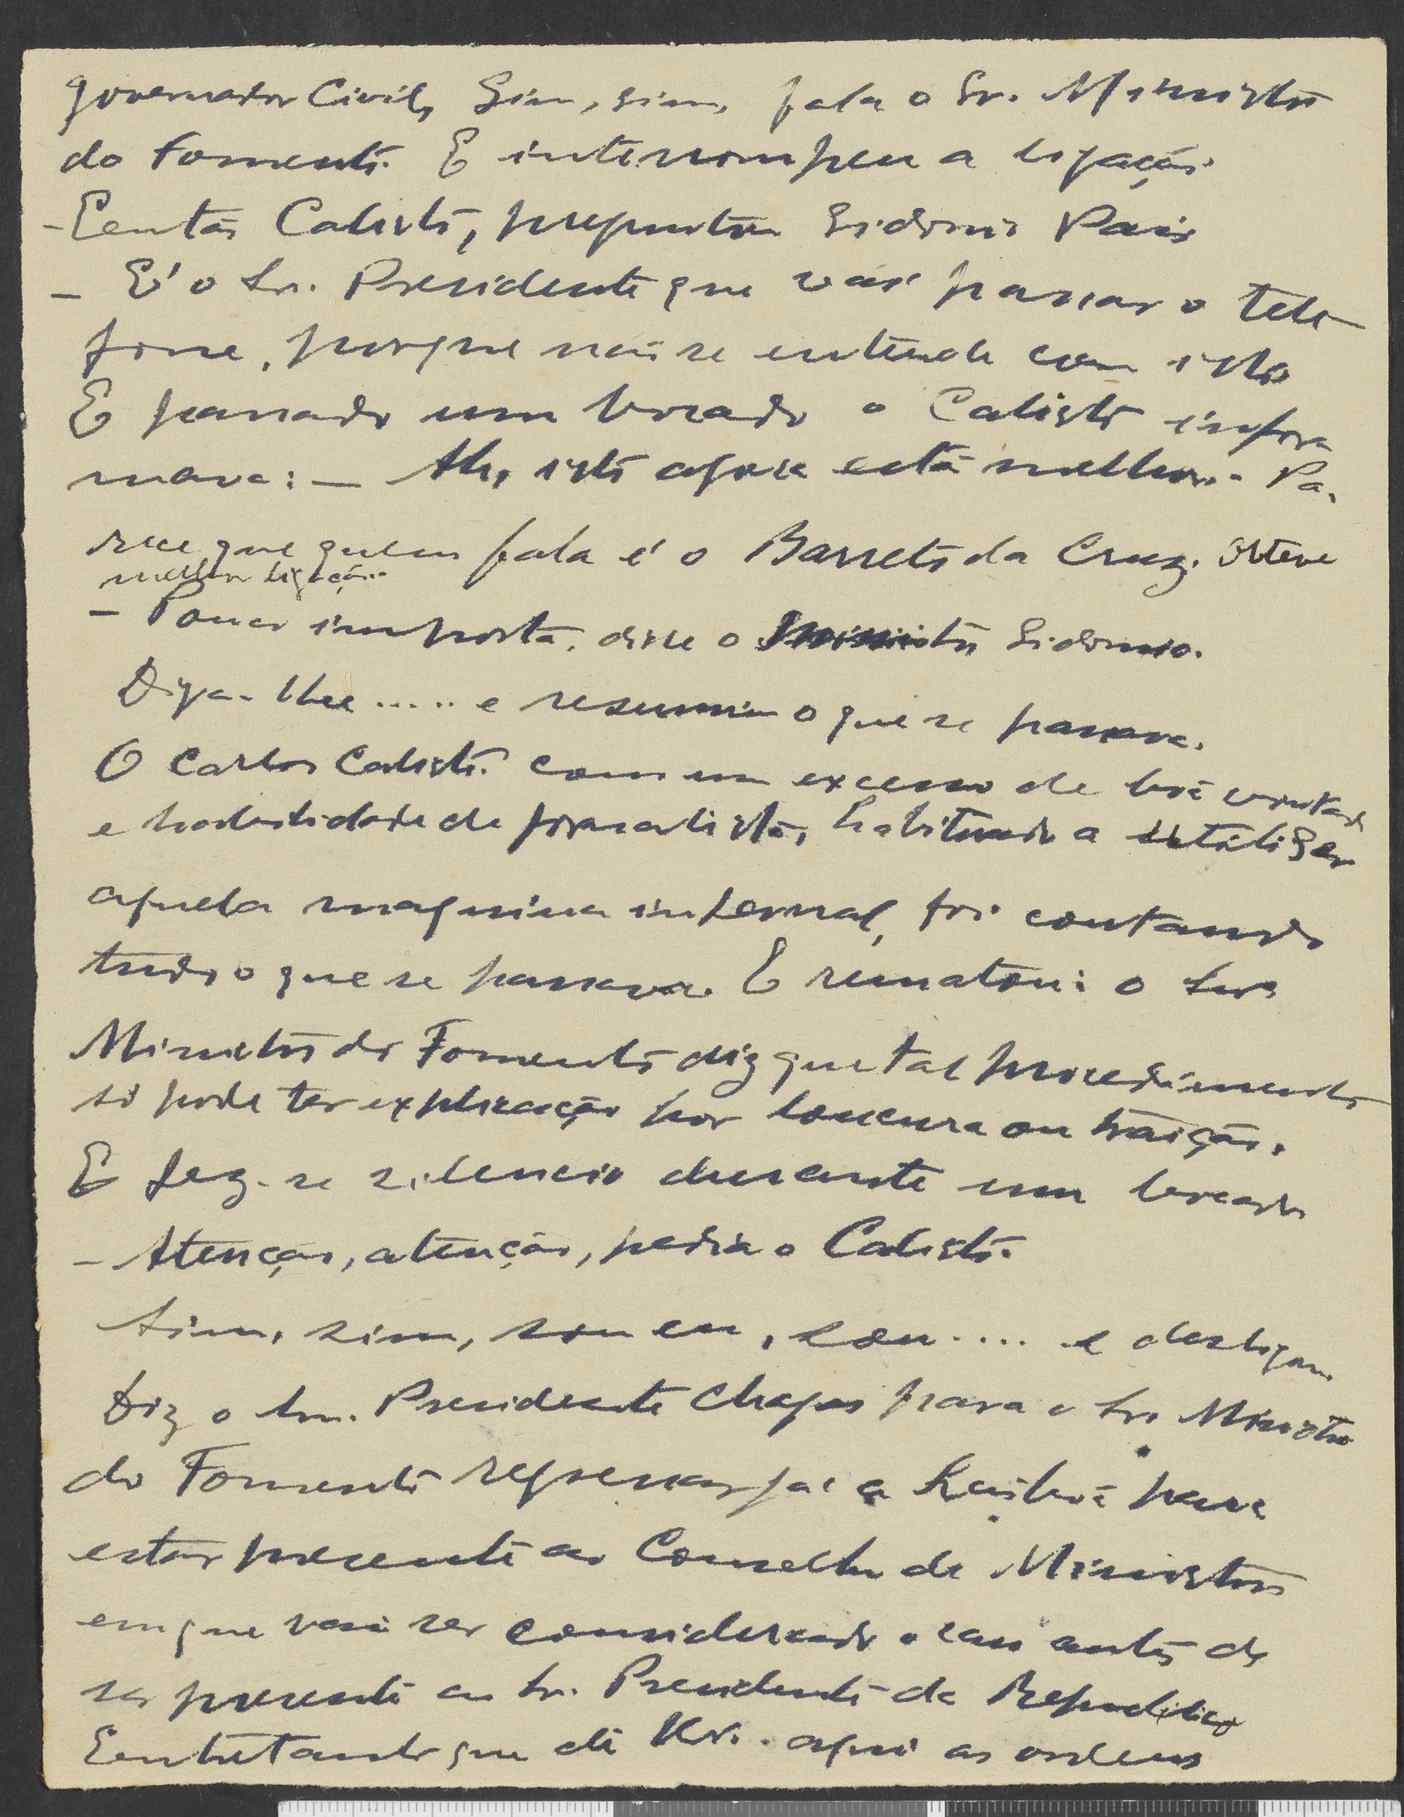 governador Civil, Sim, sim, fala o Sr. Ministro
do Fomento. E interrompeu a ligação.
- Eentão Calisto, preguntou Sidonio Pais
- E' o Sr. Presidente que vai passar o tele-
fone, porque não se entende com isto
E passado um bocado o Calisto infor
mava: - Ah, isto agora está melhor. - Pa-
rece que quem fala é o Barreto da Cruz.
melhor ligação..
- Pouco importa, disse o Sidonio.
Diga-lhe ..... e resumiu o que se passava.
O Carlos Calisto com um excesso de boa vontade
e habilidade de jornalista, habituado a utilisar
aquela maquina infernal, foi contando
tudo o que se passava. E rematou: o Snr.
Ministro do Fomento diz que tal procedimento
só pode ter explicação por loucura ou traição.
E fez-se silencio durante um bocado
- Atenção, atenção, pedia o Calisto.
Sim, sim, sou eu, sou .... e desligou.
Diz o Snr. Presidente Chagas para o Sr. Ministro
do Fomento regressar já a Lisboa para
estar presente ao Conselho de Ministros
em que vai ser considerado o caso antes de
ser presente ao Sr. Presidente da Republica
Eentretanto que dê V. aqui as ordens